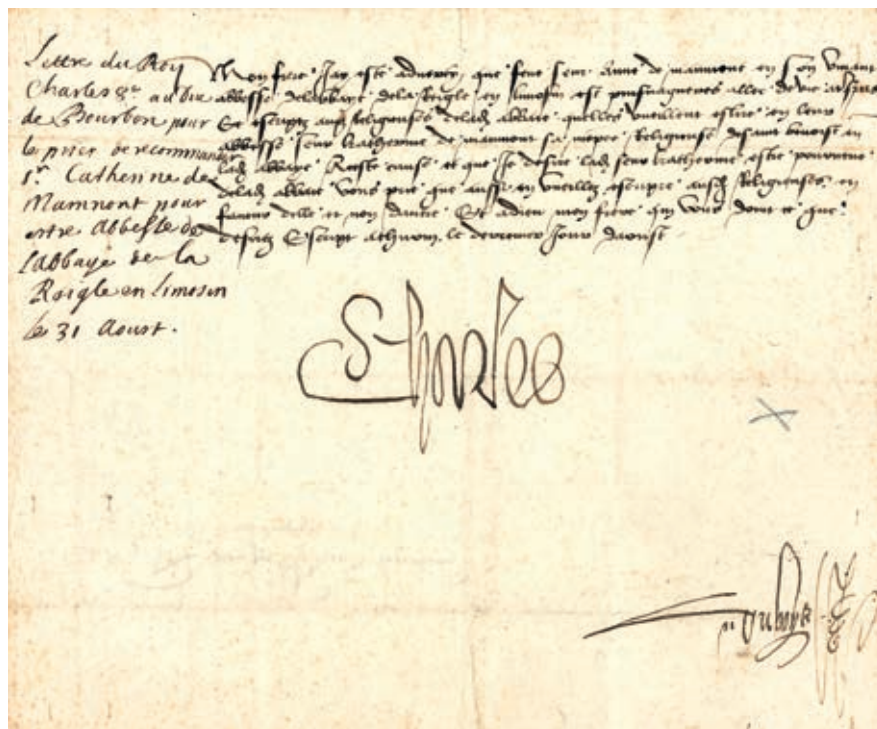 Lettre du Roy
Charles 8e au Duc
de Bourbon pour
le prier de recommander
Sr. Catherine de
Mamnont pour
estre Abbesse de
l'abbaye de la
Raigle en limosin
le 31 Aoust.
Mon frere Jay este adverty que feue seur Anne de maumont en son vivant
abbesse de labbaye de la Reigle en limosin est allee de vie
Et escriptz aux Religieuses de lad abbaye quelles vueillent eslire en leur
abbesse seur Katherine de maumont sa niepce Religieuse
lad abbaye Et que Je desire lad seur Katherine estre pourveue
de lad abbaye Vous prie que aussi en vueillez escripre ausd Religieuses en
faveur delle et non dautre Et adieu mon frere qui vous doint ce que
desirez Escript le derrenier Jour daoust
Charles